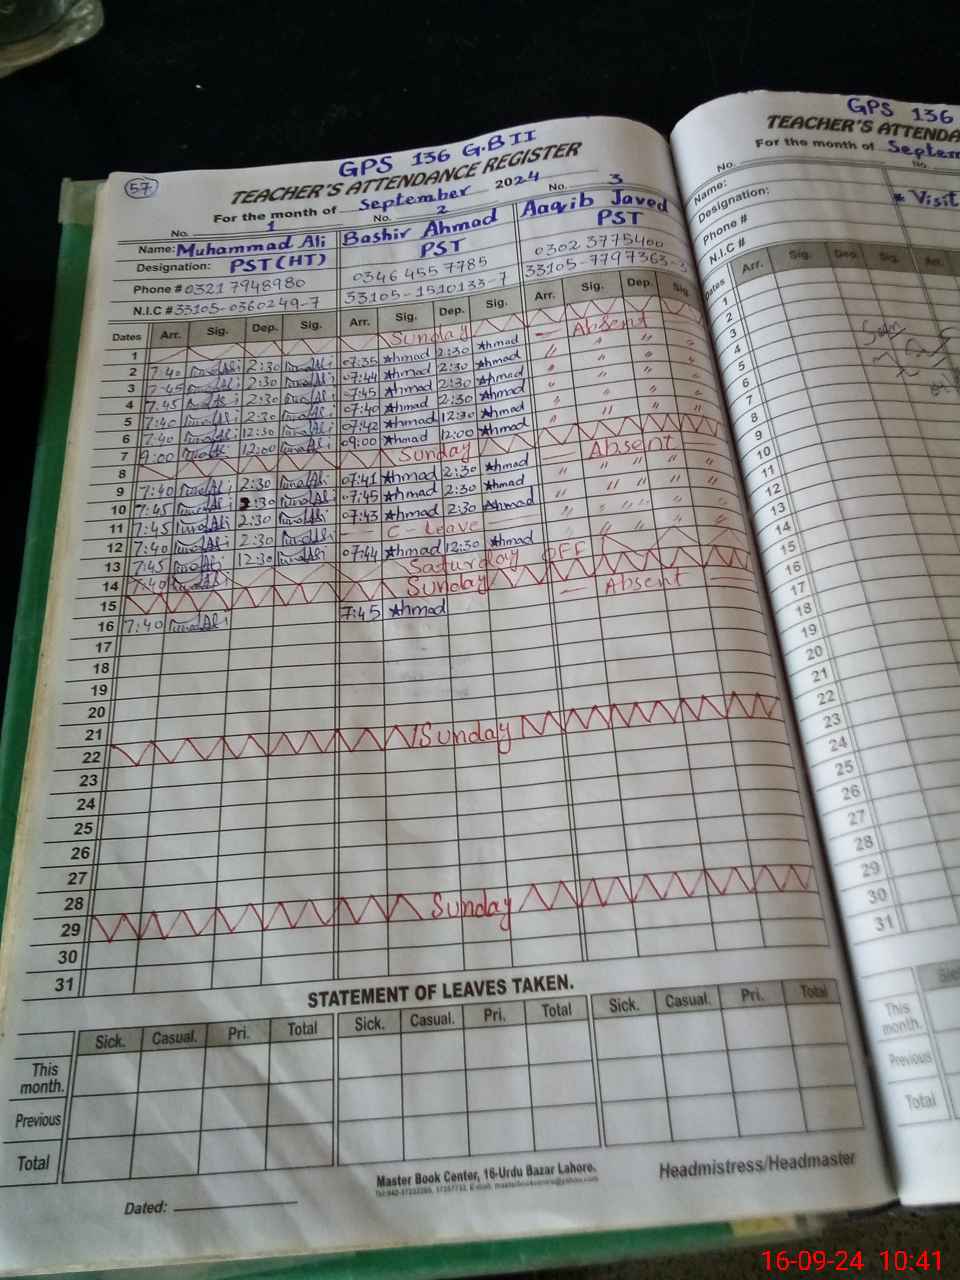 57
GPS 136 G.B II
TEACHER'S ATTENDANCE REGISTER
For the month of September 2024
No. 1 No. 2 No. 3
Name: Muhammad Ali Bashir Ahmad Aaqib Javed
Designation: PST (HT) PST PST
Phone # 0321 7948980 0346 455 7785 0302 3775400
N.I.C # 33105-0360249-7 33105-1510133-7 33105-7797363-3
Dates Arr. Sig. Dep. Sig. Arr. Sig. Dep. Sig. Arr. Sig. Dep. Sig.
1 Sunday
2 7:40 2:30 07:35 Ahmad 2:30 Ahmad Absent
3 7:45 2:30 07:44 Ahmad 2:30 Ahmad " " " "
4 7:45 2:30 07:45 Ahmad 2:30 Ahmad " " " "
5 7:40 2:30 07:40 Ahmad 2:30 Ahmad " " " "
6 7:40 12:30 07:42 Ahmad 12:30 Ahmad " " " "
7 9:00 12:00 09:00 Ahmad 12:00 Ahmad " " " "
8 Sunday
9 7:40 2:30 07:41 Ahmad 2:30 Ahmad Absent
10 7:45 2:30 07:45 Ahmad 2:30 Ahmad " " " "
11 7:45 2:30 07:43 Ahmad 2:30 Ahmad " " " "
12 7:40 2:30 C-Leave " " " "
13 7:45 12:30 07:44 Ahmad 12:30 Ahmad " " " "
14 7:40 Saturday OFF
15 Sunday
16 7:40 7:45 Ahmad Absent
17
18
19
20
21
22 Sunday
23
24
25
26
27
28
29 Sunday
30
31
STATEMENT OF LEAVES TAKEN.
Sick. Casual. Pri. Total Sick. Casual. Pri. Total Sick. Casual. Pri. Total
This month.
Previous
Total
Master Book Center, 16-Urdu Bazar Lahore.
Dated:
Headmistress/Headmaster
GPS 136
TEACHER'S ATTENDA
For the month of Septem
No. No.
Name: * Visit
Designation:
Phone #
N.I.C #
Dates Arr. Sig. Dep. Sig. Arr.
1
2
3
4
5
6
7
8
9
10
11
12
13
14
15
16
17
18
19
20
21
22
23
24
25
26
27
28
29
30
31
This month.
Previous
Total
16-09-24 10:41